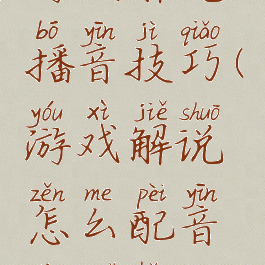 bō yīn jì qiǎo
播音技巧(
yóu xì jiě shuō
游戏解说
zěn me pèi yīn
怎么配音